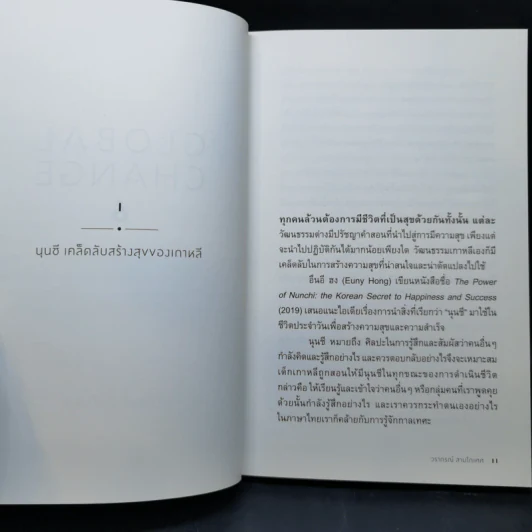 1
นุนชี เคล็ดลับสร้างสุขของเกาหลี
ทุกคนล้วนต้องการมีชีวิตที่เป็นสุขด้วยกันทั้งนั้น แต่ละ
วัฒนธรรมต่างมีปรัชญาคำสอนที่นำไปสู่การมีความสุข เพียงแต่
จะนำไปปฏิบัติกันได้มากน้อยเพียงใด วัฒนธรรมเกาหลีเองก็มี
เคล็ดลับในการสร้างความสุขที่น่าสนใจและน่าดัดแปลงไปใช้
ยืนอี ฮง (Euny Hong) เขียนหนังสือชื่อ The Power
of Nunchi: the Korean Secret to Happiness and Success
(2019) เสนอแนะไอเดียเรื่องการนำสิ่งที่เรียกว่า "นุนชี" มาใช้ใน
ชีวิตประจำวันเพื่อสร้างความสุขและความสำเร็จ
นุนชี หมายถึง ศิลปะในการรู้สึกและสัมผัสว่าคนอื่นๆ
กำลังคิดและรู้สึกอย่างไร และควรตอบกลับอย่างไรจึงจะเหมาะสม
เด็กเกาหลีถูกสอนให้มีนุนชีในทุกขณะของการดำเนินชีวิต
กล่าวคือ ให้เรียนรู้และเข้าใจว่าคนอื่นๆ หรือกลุ่มคนที่เราพูดคุย
ด้วยนั้นกำลังรู้สึกอย่างไร และเราควรกระทำตนเองอย่างไร
ในภาษาไทยเราก็คล้ายกับการรู้จักกาลเทศะ
วรากรณ์ สามโกเศศ 11